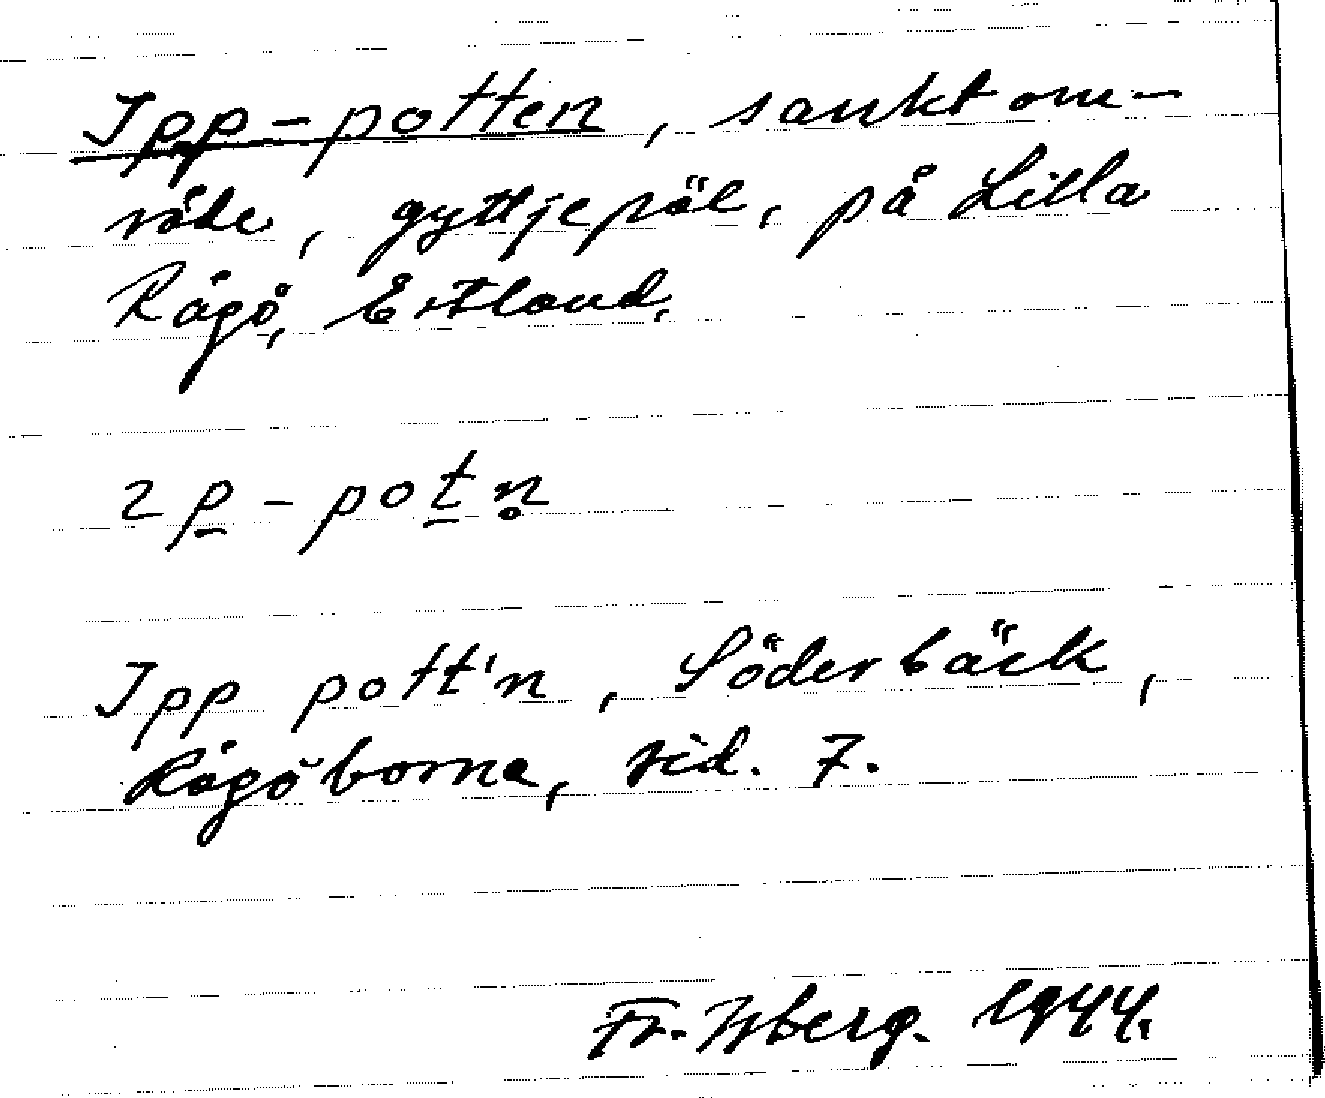 Ipp-potten, sankt om-
råde, gyttjepöl, på Lilla
Rågö, Estland.
ɪp̲-pot̲n̥
Ipp pott'n, Söderbäck,
Rågöborna, sid. 7.
Fr. Isberg. 1944.